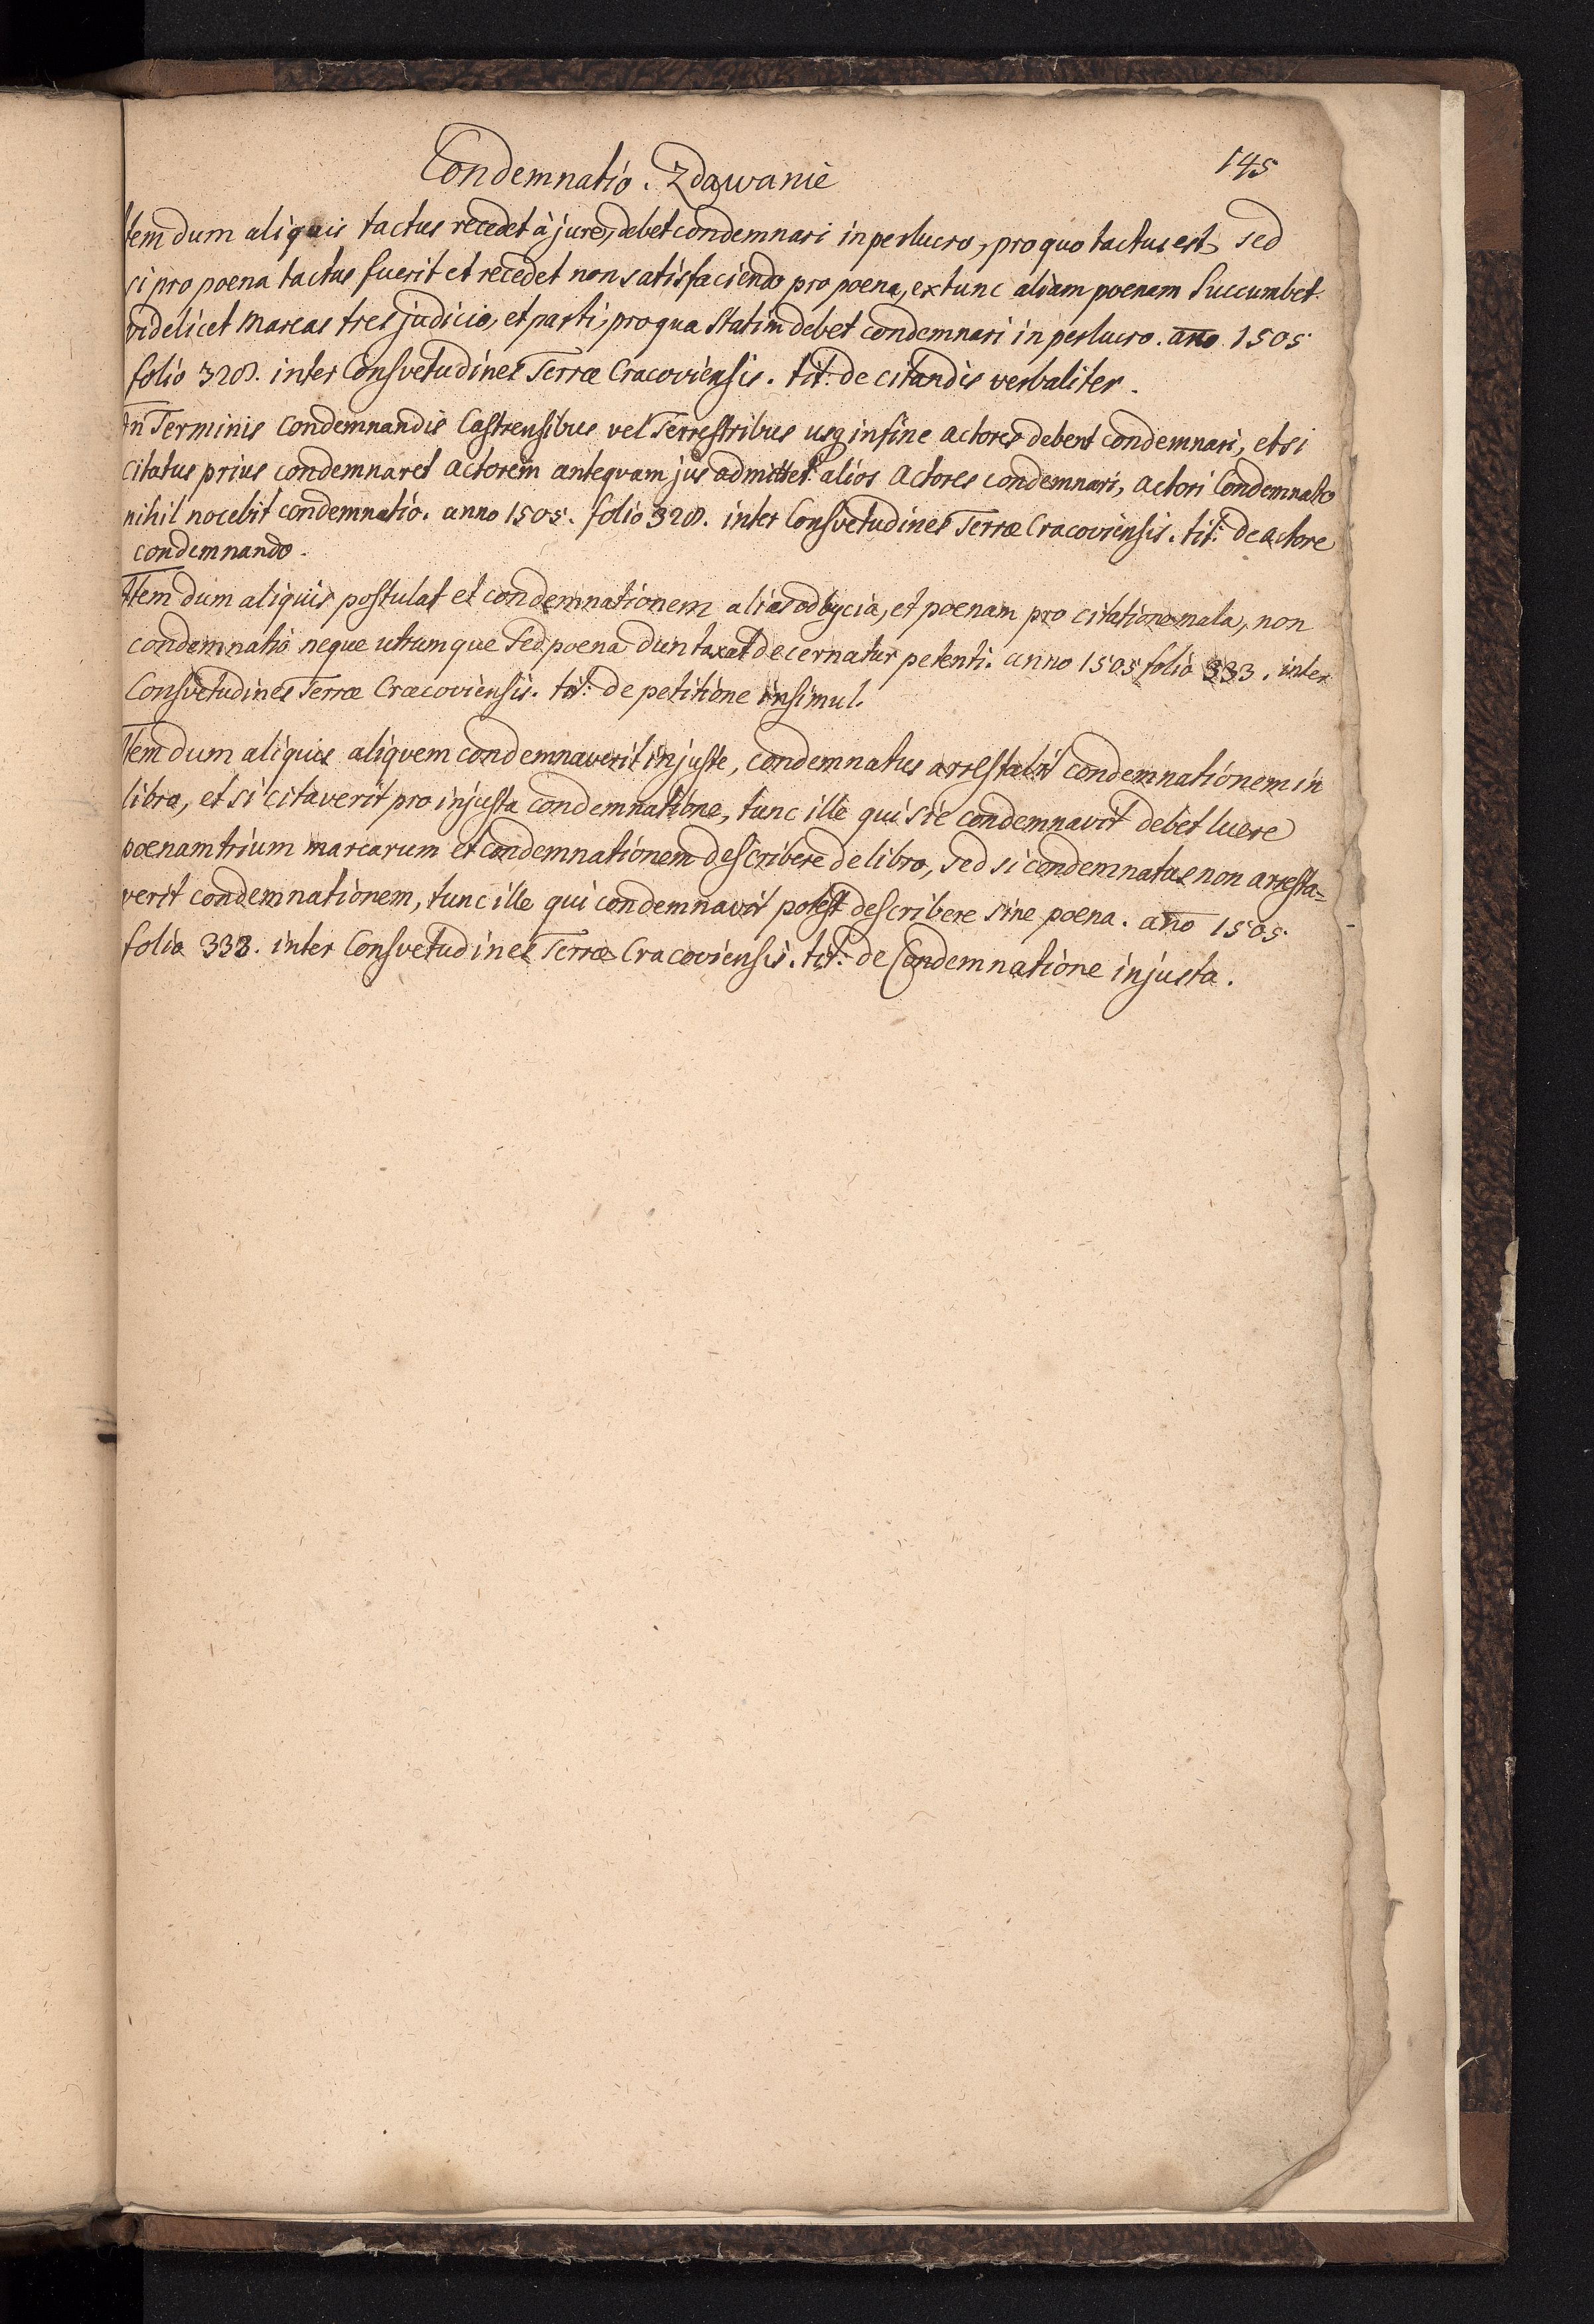 Condemnatio. Zdawanie
145
Item dum aliquis tactus recedet à jure, debet condemnari in perlucro, pro quo tactus est, sed
si pro poena tactus fuerit et recedet non satisfaciendo pro poena, extunc aliam poenam succumbet
videlicet marcas tres judicio, et parti, pro qua statim debet condemnari in perlucro. año 1505
folio 328. inter Consvetudines Terræ Cracoviensis. tit: de citandis verbaliter.
In Terminis condemnandis Castrensibus vel Terrestribus usq in fine actores debent condemnari, et si
citatus prius condemnaret actorem anteqvam jus admittet alios actores condemnari, actori Condemnato
nihil nocebit condemnatio. anno 1505. folio 328. inter Consvetudines Terræ Cracoviensis. tit: de actore
condemnando.
Item dum aliquis postulat et condemnationem alias odbycia, et poenam pro citatione mala, non
condemnatio neque utrumque sed poena duntaxat decernatur petenti. anno 1505 folio 333. inter
Consvetudines Terræ Cracoviensis. tit: de petitione insimul.
Item dum aliquis aliqvem condemnaverit injuste, condemnatus arrestabit condemnationem in
libro, et si citaverit pro injusta condemnatione, tunc ille qui sic condemnavit debet luere
poenam trium marcarum et condemnationem describere de libro, sed si condemnatus non arresta=
verit condemnationem, tunc ille qui condemnavit potest describere sine poena. año 1505
folio 333. inter Consvetudines Terræ Cracoviensis. tit: de Condemnatione injusta.